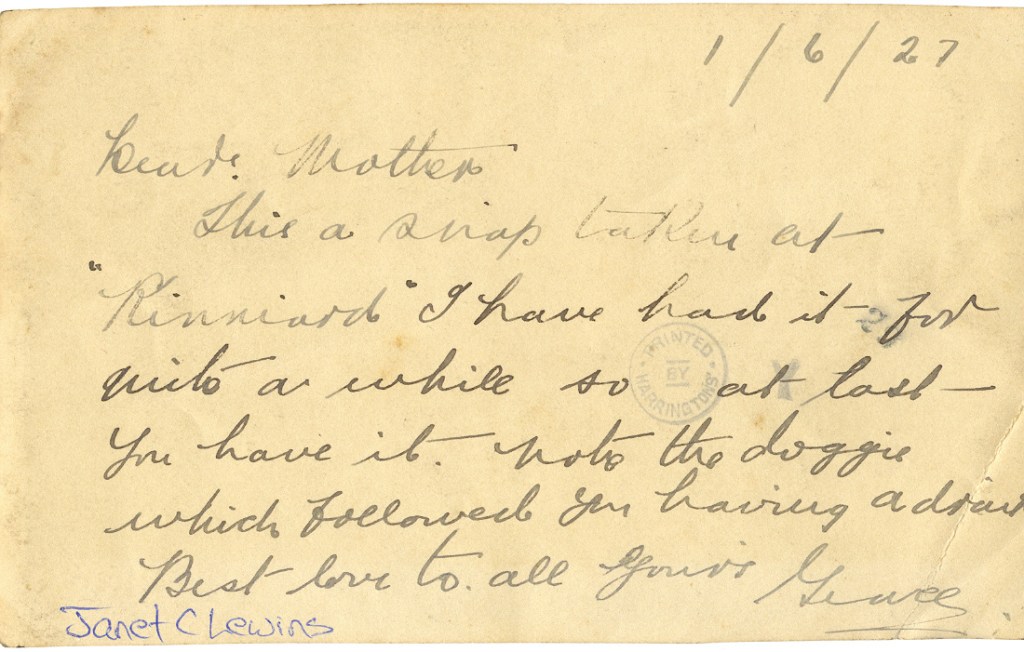 1/6/27
Dear Mother
This a snap taken at
"Kinniard" I have had it for
quite a while so at last
you have it. Note the doggie
which followed you having a drink
Best love to all Yours
Janet C Lewins
PRINTED
BY
HARRINGTONS'